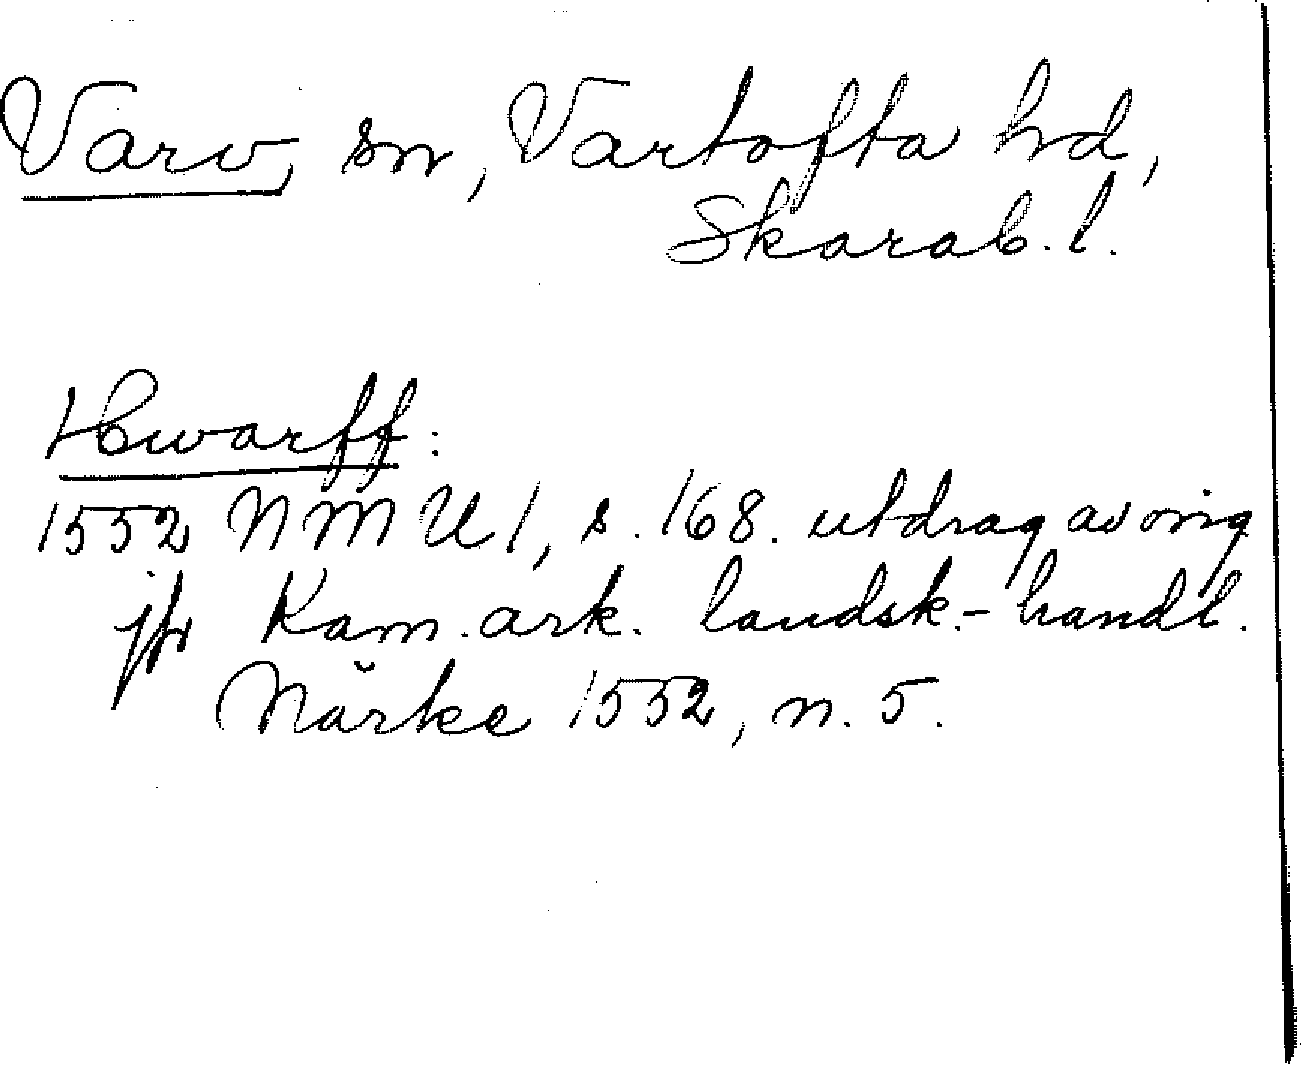 Varv, sn, Vartofta hd,
Skarab. l.
Hwarff:
1552 NMU 1, s. 168. utdrag av orig
jfr Kam. ark. landsk.-handl.
Närke 1552, n. 5.